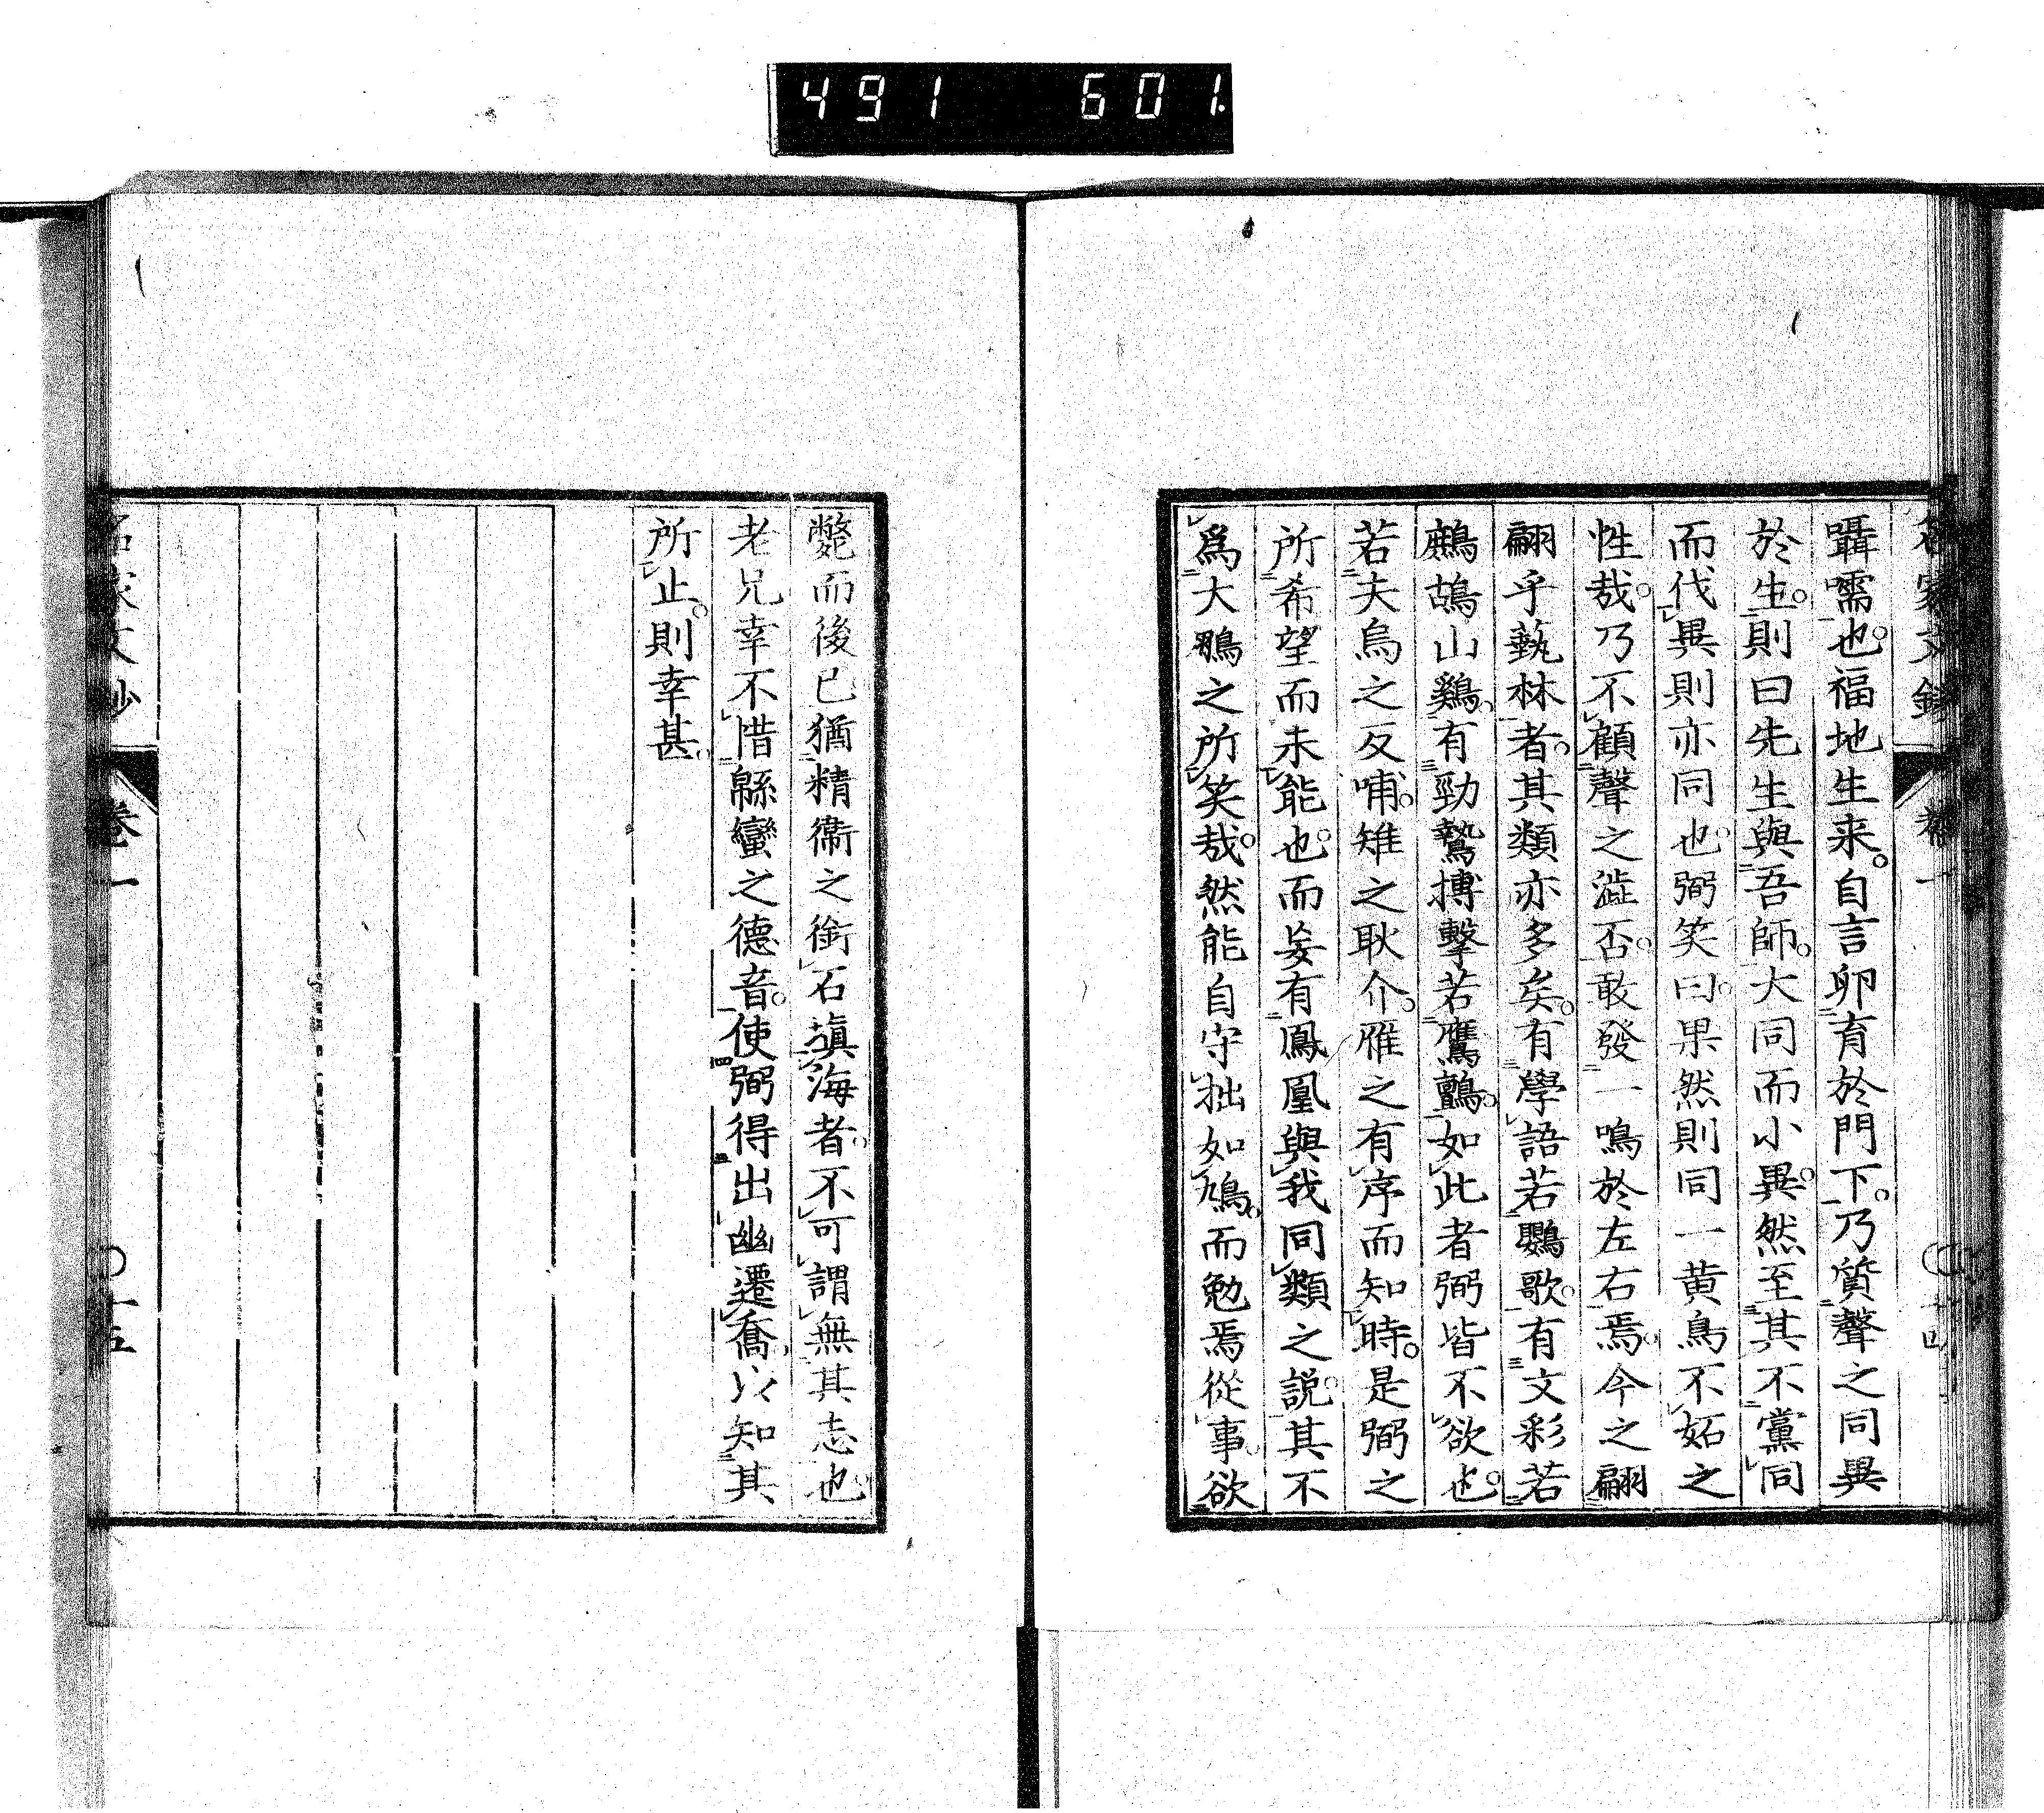 491 601.
名家文鈔 卷一 ○十四
聶嚅也。福地生来。自言卵育於門下。乃質聲之同異
於生。則曰先生與吾師。大同而小異。然至其不黨同
而伐異則亦同也。弼笑曰。果然則同一黄鳥不妬之
性哉。乃不顧聲之澁否。敢發一鳴於左右焉。今之翩
翩乎藝林者。其類亦多矣。有學語若鸚歌。有文彩若
鷓鴣山鷄。有勁鷙搏擊若鷹鸇。如此者弼皆不欲也。
若夫烏之反哺。雉之耿介。雁之有序而知時。是弼之
所希望而未能也。而妄有鳳凰與我同類之説。其不
爲大鵬之所笑哉。然能自守拙如鳩。而勉焉從事。欲
斃而後已猶精衞之銜石塡海者。不可謂無其志也。
老兄幸不惜緜蠻之德音。使弼得出幽遷喬。以知其
所止。則幸甚。
名家文鈔 卷一 ○十五